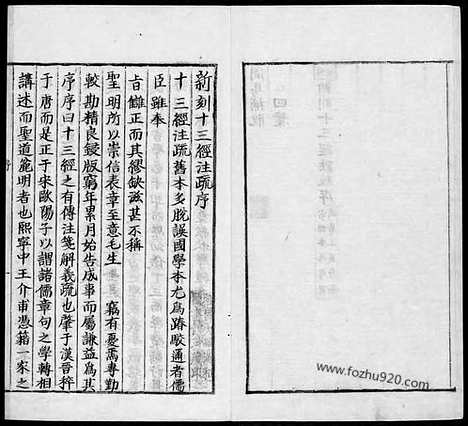 新刻十三經注疏序
十三經注疏舊本多脫誤國學本尤為踳駮通者儒
臣雖奉
旨讎正而其繆缺滋甚不稱
聖明所以崇信表章至意毛生　竊有憂焉專勤
較勘精良鋟版窮年累月始告成事而屬謙益為其
序序曰十三經之有傳注箋解義疏也肇于漢晉粹
于唐而是正于宋歐陽子以謂諸儒章句之學轉相
講述而聖道麄明者也熙寧中王介甫憑藉一家之
www.fozhu920.com